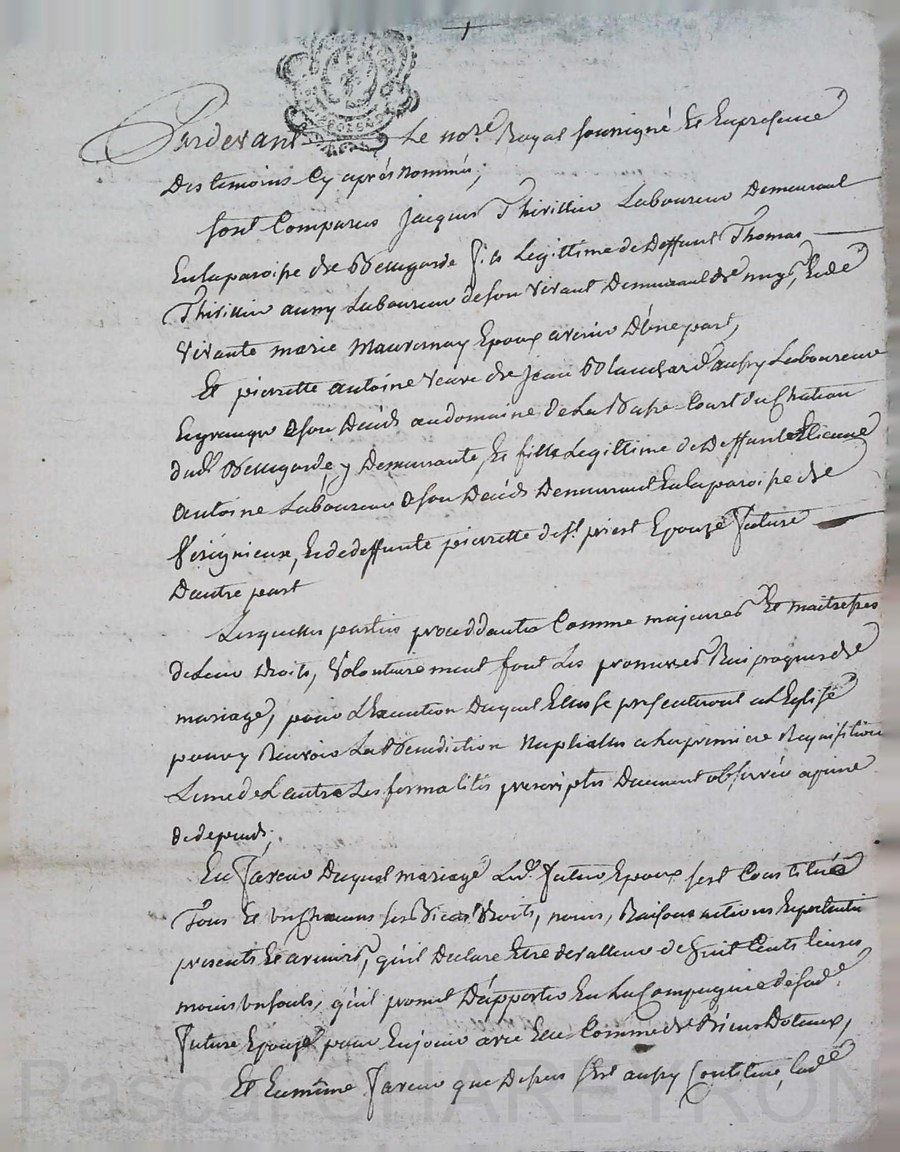 Pardevant Le nore Royal soussigné Et En presence
Des temoins Cy aprés nommés;
sont Comparus Jacques Thivillier Laboureur Demeurant
En la paroisse de Bellegarde fils Legittime de Deffunt Thomas
Thivillier aussy Laboureur de son vivant Demeurant de mesme, Et de
vivante marie Mauvernay Epoux avenir D'une part,
Et pierrette antoine veuve de Jean Blanchard aussy Laboureur
En grange a son Decés au domaine de La Basse-Court du Chateau
dud. Bellegarde, y Demeurante, Et fille Legittime de Deffunt Etienne
antoine Laboureur a son Decés Demeurant En la paroisse de
Et de deffunte pierrette de St. priest Epouse future
D'autre part
Lesquelles parties proceddantes Comme majeures Et maitresses
de Leur Droits, volontairement font Les promesses Reciproques de
mariage, pour L'Execution Duquel Elles se presenteront a L'Eglise
pour y Recevoir La Benediction Nuptialle a La premiere Requisition
L'une de L'autre Les formalités prescriptes Duement observées a peine
de depends;
En faveur Duquel mariage Led. futur Epoux s'est Constitué
Tous Et un Chacuns ses Biens Droits, noms, Raisons actions Et pretentions
presents Et avenirs, qu'il Declare Etre de valleur de huit Cents livres
moins un sols, qu'il promet D'apporter En La Compagnie de sad.
future Epouse pour En jouir avec Elle Comme de Biens Dotaux,
Et En même faveur que Dessus s'est aussy Constitué, lade
Pascal CHAREYRON